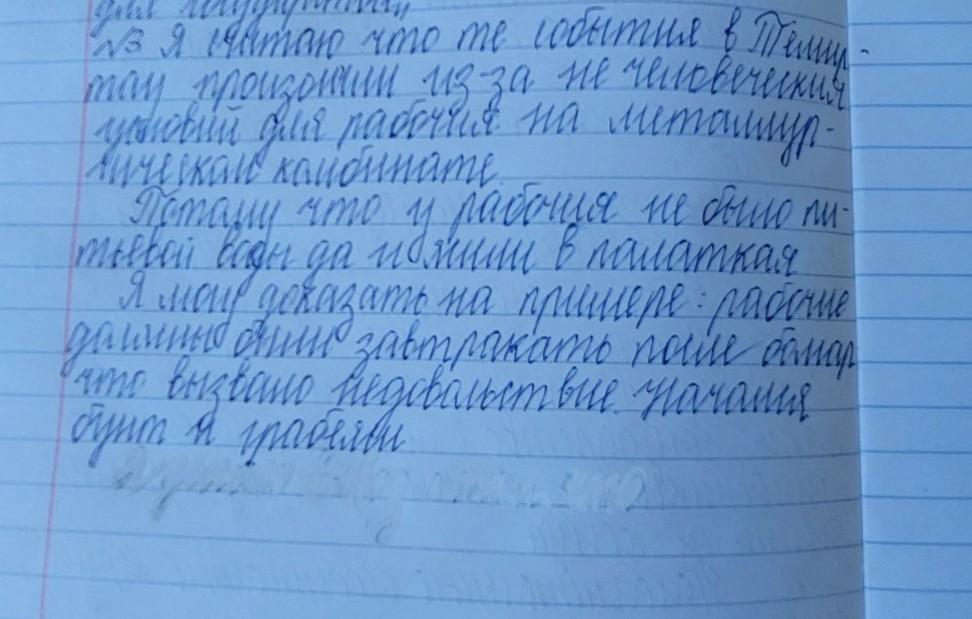 для государства"
№3 Я считаю что те события в Темир-
тау произошли из-за не человеческия
условий для рабочия на металлур-
гическом комбинате.
Потому что у рабочия не было пи-
тьевой воды да и жили в палаткая
Я могу доказать на примере: рабочие
должны были завтракать после
что вызвало недовольствие. Начался
бунт и грабежи